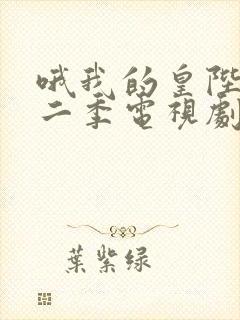 哦我的皇陛
二季電視劇
葉紫绿